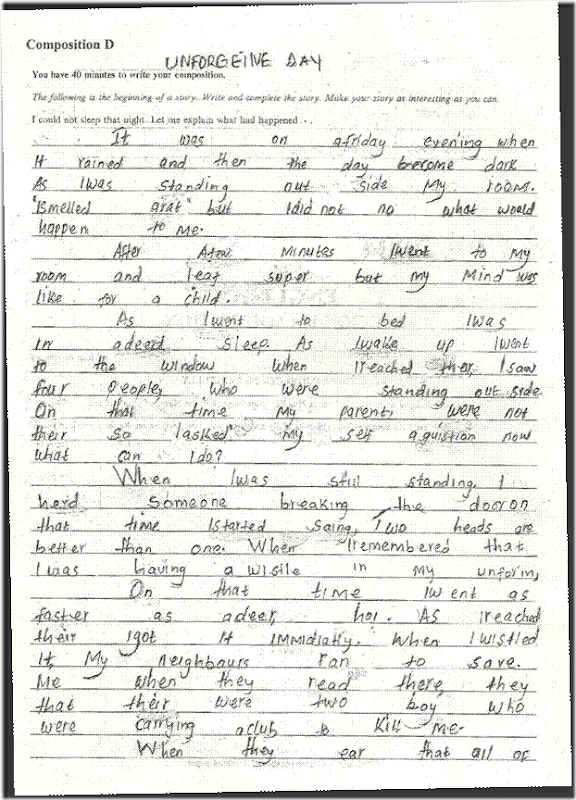 Composition D
UNFORGEINE DAY
You have 40 minutes to write your composition.
The following is the beginning of a story. Write and complete the story. Make your story as interesting as you can.
I could not sleep that night. Let me explain what had happened . .
It was on afriday evening when
It rained and then the day become dark
As Iwas standing out side My room.
"Ismelled arat" but Idid not no what would
happen to me.
After Afew Minutes Iwent to My
room and leaf super but my Mind was
like for a child.
As Iwent to bed Iwas
in adeed sleep. As Iwake up Iwent
to the window when Ireached ther, Isaw
four people, who were standing out side.
On that time My parent, were not
their so Iasked my self aquistion now
what can Ido?
When Iwas still standing, I
herd Someone breaking the dooron
that time Istarted saing, Two heads are
better than one. When Iremembered that
I was having a wisile in my unform,
On that time Iwent as
faster as adeer, hoi. As Ireached
their Igot it immidiatly. When Iwistled
It, My neighbours ran to save.
Me when they read there, they
that their were two boy who
were carrying aclub to Kill me.
When they ear that all of